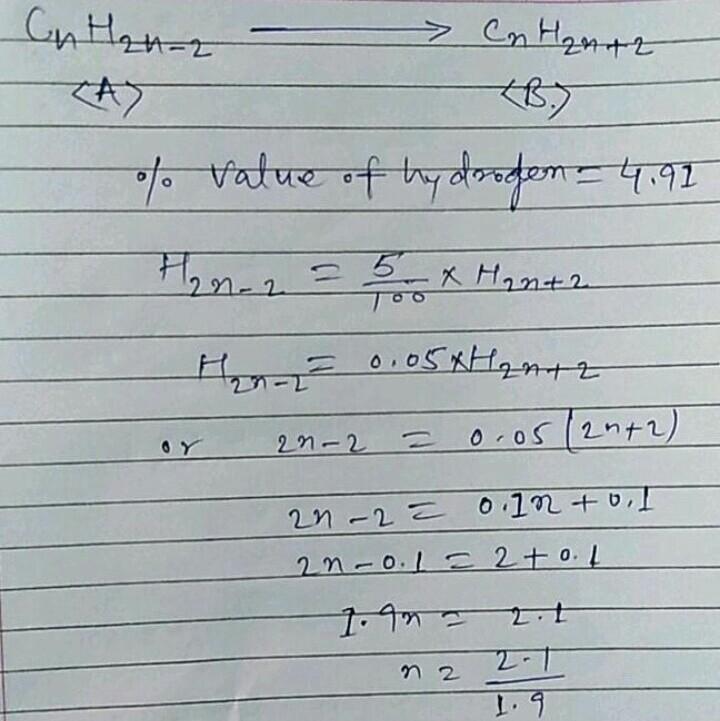 CnH2n-2 ⟶ CnH2n+2
<A> <B.>
% value of hydrogen = 4.91
H2n-2 = 5/100 × H2n+2
H2n-2 = 0.05×H2n+2
or 2n-2 = 0.05(2n+2)
2n-2 = 0.1n+0.1
2n-0.1 = 2+0.1
1.9n = 2.1
n = 2.1/1.9